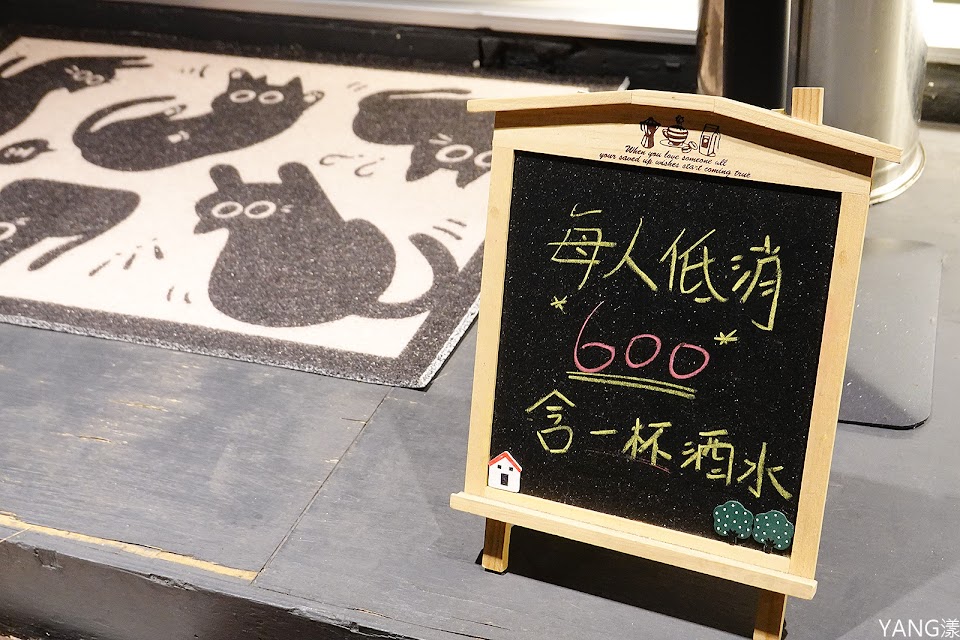 When you love someone all
your saved up wishes start coming true
每人低消
*600*
含一杯酒水
YANG漾